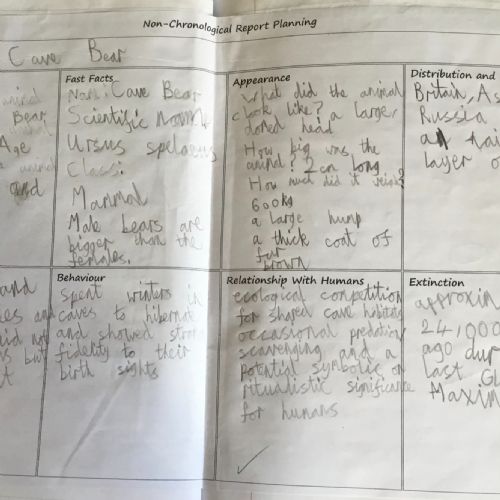 Non-Chronological Report Planning
Cave Bear
animal
Bear
Age
animal
and
Fast Facts
Name: Cave Bear
Scientific Name
Ursus spelaeus
Class:
Mammal
Male bears are
bigger than the
females.
Appearance
What did the animal
look like? a large,
domed head
How big was the
animal? 2 on long
How much did it weigh?
600kg
a large hump
a thick coat of
fur
brown
Distribution and
Britain, As
Russia
layer o
and
ies and
did not
s but
t
Behaviour
spent winters in
caves to hibernate
and showed stron
fidelity to their
birth sights
Relationship With Humans
ecological competition
for shared cave habitats
occasional predation/
scavenging and a
potential symbolic or
ritualistic significance
for humans
Extinction
approxim
24,000
ago dur
last Gl
Maxim